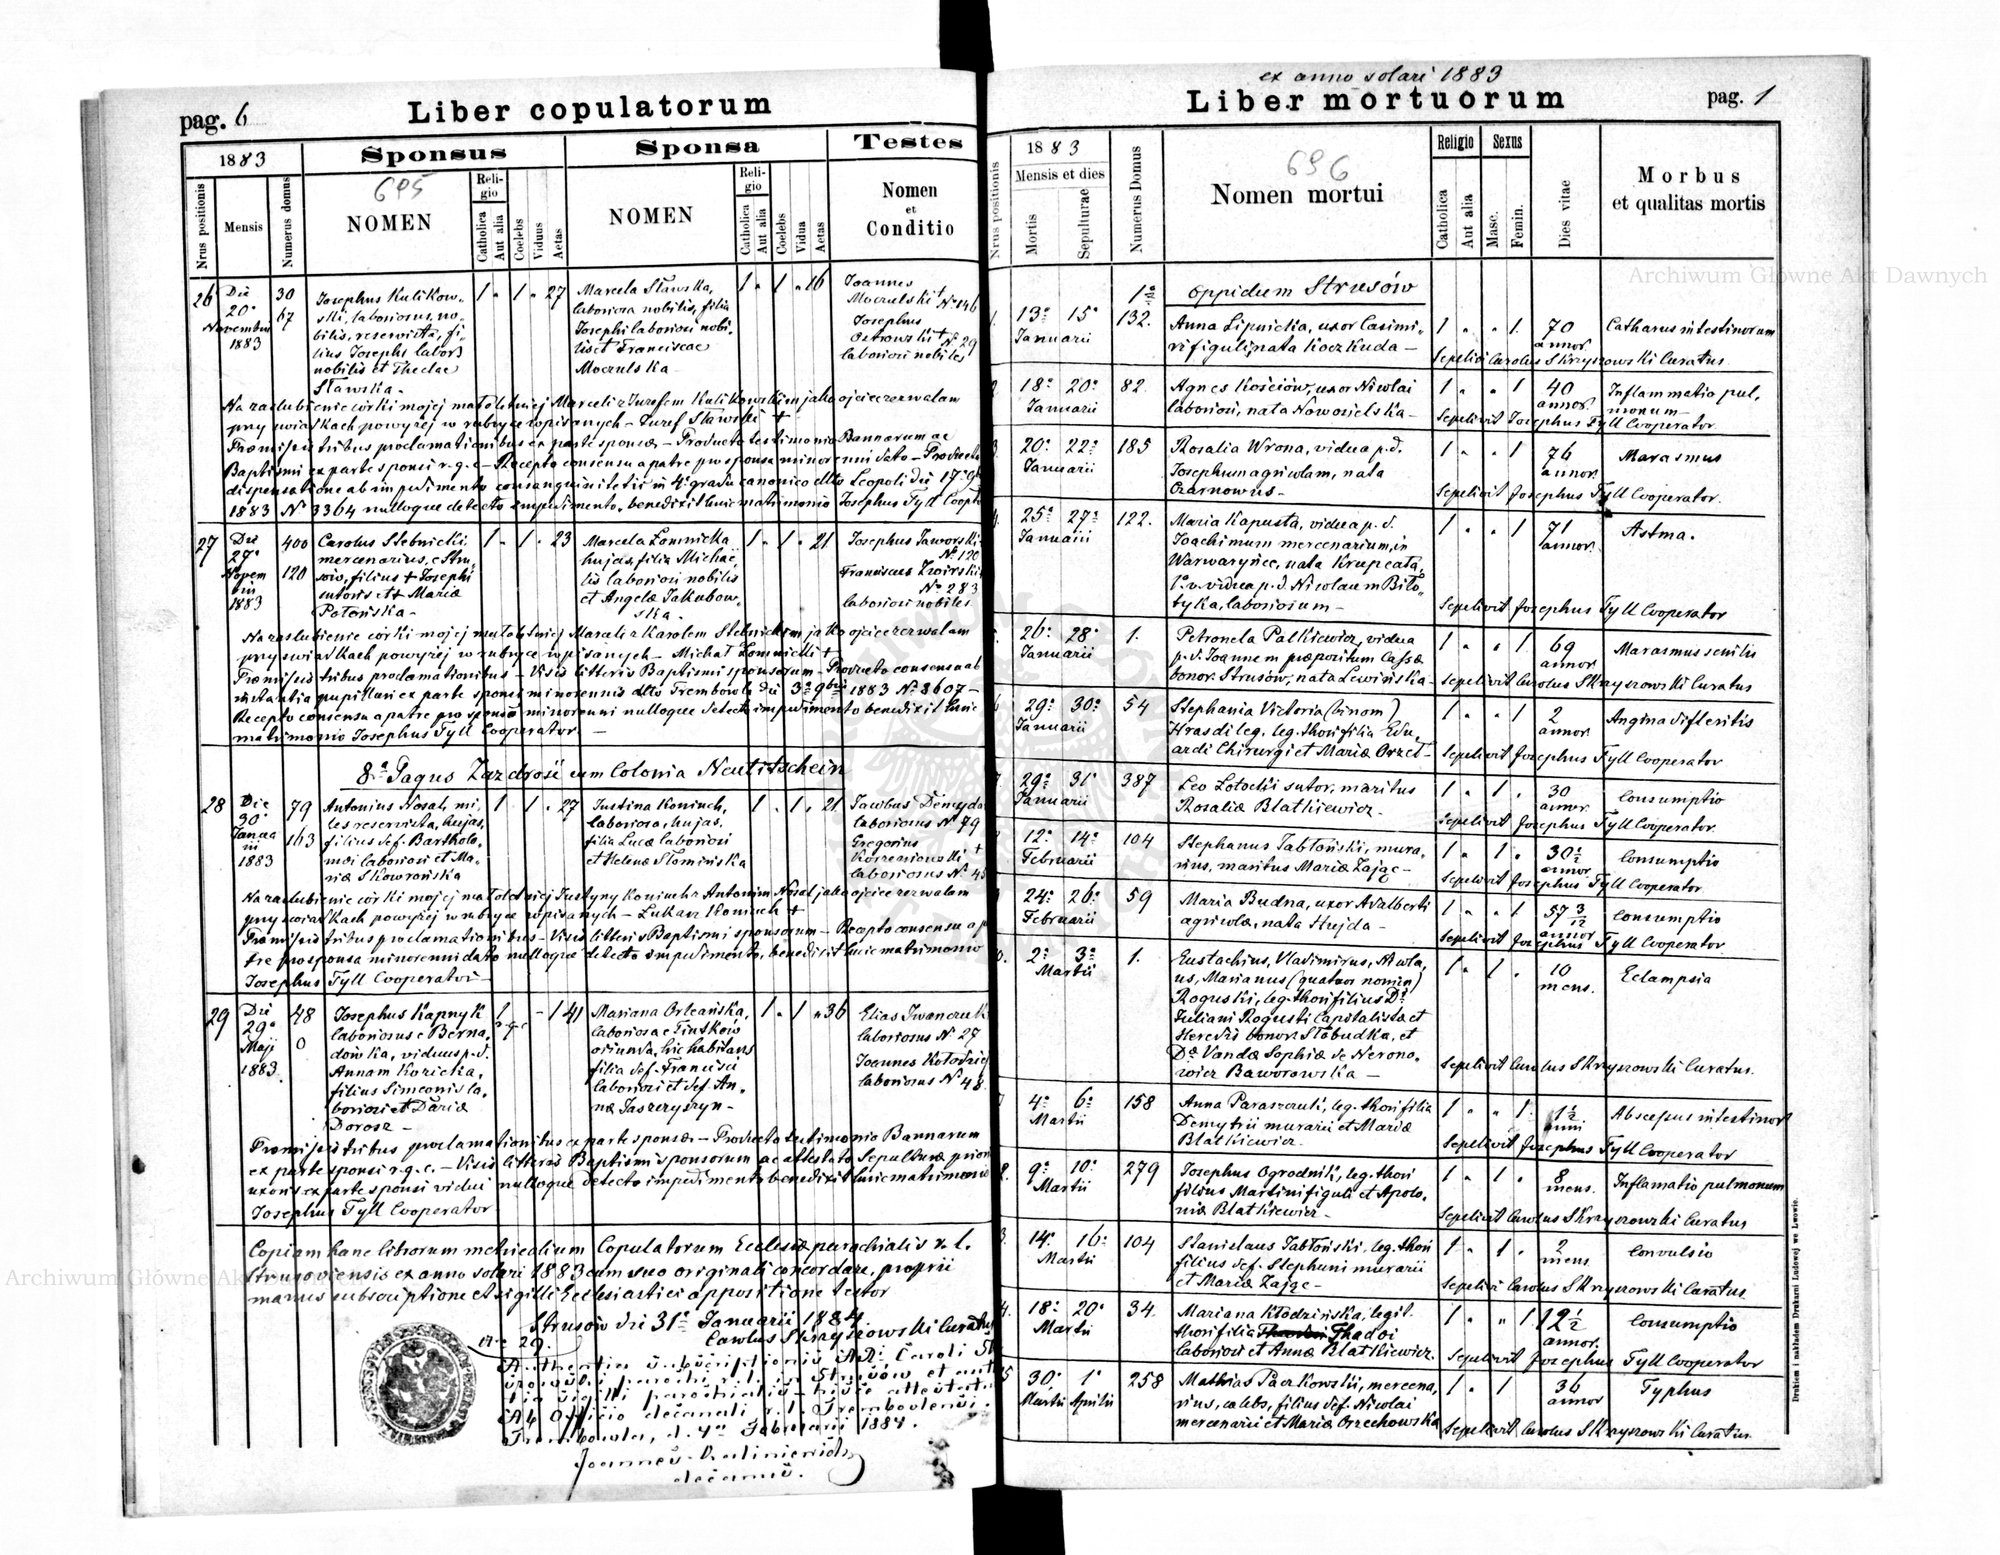 pag. 6
Liber copulatorum
1883
Sponsus
Sponsa
Testes
Nrus positionis
Mensis
Numerus domus
695
NOMEN
Reli-
gio
Catholica
Aut alia
Coelebs
Viduus
Aetas
NOMEN
Reli-
gio
Catholica
Aut alia
Coelebs
Vidua
Aetas
Nomen
et
Conditio
26 Die 30 Josephus Kulikow- 1 " 1 " 27 Marcela Stawska, 1 " 1 " 16 Joannes
20a 67 ski, laboriosus, no- laboriosa nobilis, filia Moczulski + No 146
Novembris bilis, reservista, fi- Josephi laboriosi nobi- Josephus
1883 lius Josephi labor. lis et Franciscae Ostrowski + No 29
nobilis et Theclae Moczulska laboriosi nobiles
Stawska -
Na zaslubienie córki mojej małoletniej Marceli z Jozefem Kulikowskim jako ojciec zezwalam
przy swiadkach powyżej w rubryce wpisanych - Jozef Stawski +
Praemissis tribus proclamationibus ex parte sponsae - Producto testimonio Bannorum ac
Baptismi ex parte sponsi r. g. c. - Recepto consensu a patre pro sponsa minorenni dato -
dispensatione ab impedimento consanguinitatis in 4o gradu canonico dtto Leopoli die 17a
1883 No 3364 nulloque detecto impedimento, benedixit huic matrimonio Josephus Tyll
27 Die 400 Carolus Stebnicki 1 " 1 " 23 Marcela Łomnicka 1 " 1 " 21 Josephus Jaworski
27a mercenarius, e Stru- hujas, filia Michaë- No 120
Novem 120 sów, filius + Josephi lis laboriosi nobilis Franciscus
bris sutoris et + Mariae et Angelae Jakubow- No 283
1883 Potońska - ska - laboriosi nobiles
Na zaslubienie córki mojej małoletniej Marceli z Karolem Stebnickim jako ojciec zezwalam
przy swiadkach powyżej w rubryce wpisanych - Michał Łomnicki +
Praemissis tribus proclamationibus - Visis litteris Baptismi sponsorum - Producto consensu ab
instantia pupillari ex parte sponsi minorennis dtto Trembowla die 3a 9bris 1883 No 3607 -
Recepto consensu a patre pro sponsa minorenni nulloque detecto impedimento benedixit huic
matrimonio Josephus Tyll Cooperator. -
8a Pagus Zazdrość cum Colonia Neutitschein
28 Die 79 Antonius Nosal, mi- 1 1 " 27 Justina Koniuch, 1 " 1 " 21 Jacobus
30a les reservista, hujas, laboriosa, hujas, laboriosus No 79
Janua 163 filius def. Bartholo- filia Lucae laboriosi Gregorius
rii maei laboriosi et Ma- et Helenae Słomińska Korzeniowski +
1883 riae Skowrońska laboriosus No 45
Na zaslubienie córki mojej małoletniej Justyny Koniuch z Antonim Nosal jako ojciec zezwalam
przy swiadkach powyżej w rubryce wpisanych - Łukasz Koniuch +
Praemissis tribus proclamationibus - Visis litteris Baptismi sponsorum - Recepto consensu a pa
tre pro sponsa minorenni dato nulloque detecto impedimento, benedixit huic matrimonio
Josephus Tyll Cooperator -
29 Die 48 Josephus Kapnyk 1 - 1 41 Mariana Orleańska, 1 " 1 " 36 Elias Iwanczuk
29a laboriosus e Berna- r. g. c. laboriosa e laboriosus No 27
Maji 0 dówka, viduus p. d. oriunda, hic habitans
1883. Annam Kozicka, filia def. Francisci Joannes
filius Simeonis la- laboriosi et def. An- laboriosus No 48
boriosi et Dariae nae Jaszczyszyn -
Dorosz -
Praemissis tribus proclamationibus ex parte sponsae - Producto testimonio Bannorum
ex parte sponsi r. g. c. - Visis litteris Baptismi sponsorum ac attestato Sepulturae prioris
uxoris ex parte sponsi vidui nulloque detecto impedimento benedixit huic matrimonio
Josephus Tyll Cooperator
Copiam hanc librorum metricalium Copulatorum Ecclesiae parochialis r. l.
Strusoviensis ex anno solari 1883 cum suo originali concordare, proprii
manus subscriptione et sigilli Ecclesiastici appositione testor
Strusów die 31a Januarii 1884
Carolus Skrzyszowski Curatus
No 29.
Authentia subscriptionis Caroli
parochi r. l. in Strusów et
sigilli parochialis hisce
Ab Officio decanali r. l. Trembovlensi.
Trembowla, d. 4a Februarii 1884.
Joannes
decanus.
ex anno solari 1883
Liber mortuorum
pag. 1
Nrus positionis
1883
Mensis et dies
Mortis
Sepulturae
Numerus Domus
696
Nomen mortui
Religio
Catholica
Aut alia
Sexus
Masc.
Femin.
Dies vitae
Morbus
et qualitas mortis
Oppidum Strusów
1. 13a 15a 132. Anna Lipnicka, uxor Casimi- 1 " " 1. 70 Catharus intestinorum
Januarii ri figuli, nata Koczkuda - annor.
Sepelivit Carolus Skrzyszowski Curatus
2 18a 20a 82. Agnes Kościów, uxor Nicolai 1 " " 1 40 Inflammatio pul-
Januarii laboriosi, nata Nowosielska - annor. monum -
Sepelivit Josephus Tyll Cooperator.
3 20a 22a 185 Rosalia Wrona, vidua p. d. 1 " " 1 76 Marasmus
Januarii Josephum agricolam, nata annor.
Czarnowus - Sepelivit Josephus Tyll Cooperator.
4. 25a 27a 122. Maria Kapusta, vidua p. d. 1 " " 1 71 Astma.
Januarii Joachimum mercenarium, in annor.
Warwaryńce, nata Krupcata,
1o v. vidua p. d. Nicolaum Biło-
tyka, laboriosum - Sepelivit Josephus Tyll Cooperator
26a 28a 1. Petronela Palkiewicz, vidua 1 " " 1. 69 Marasmus senilis
Januarii p. d. Joannem praepositum Cassae annor.
bonor. Strusów, nata Lewińska - Sepelivit Carolus Skrzyszowski Curatus
29a 30a 54 Stephania Victoria (binom) 1 " " 1 2 Angina difteritis
Januarii Hrasdi leg. leg. thori filia Edu- annor.
ardi Chirurgi et Mariae Orzel - Sepelivit Josephus Tyll Cooperator
29a 31a 387 Leo Lotocki sutor, maritus 1 " 1 " 30 Consumptio
Januarii Rosaliae Blatkiewicz. annor.
Sepelivit Josephus Tyll Cooperator.
12a 14a 104 Stephanus Jabłoński, mura- 1 " 1 " 30½ Consumptio
Februarii rius, maritus Mariae Zając - annor.
Sepelivit Josephus Tyll Cooperator
24a 26a 59 Maria Budna, uxor Adalberti 1 " " 1 57 3/12 Consumptio
Februarii agricolae, nata Hujda - annor
Sepelivit Josephus Tyll Cooperator.
2a 3a 1. Eustachius, Vladimirus, Nicola- 1 " 1 " 10 Eclampsia
Martii us, Marianus (quatuor nomin) mens.
Roguski, leg. thori filius Di
Juliani Roguski Capitalistae et
Heredis bonor. Słobudka, et
Dae Vandae Sophiae de Nerono-
wicz Baworowska - Sepelivit Carolus Skrzyszowski Curatus.
4a 6a 158 Anna Paraszczuk, leg. thori filia 1 " " 1. 1½ Abscepus intestinor
Martii Demytrii murarii et Mariae anni
Blatkiewicz. Sepelivit Josephus Tyll Cooperator
9a 10a 279 Josephus Ogrodnik, leg. thori 1 " 1 " 8 Inflamatio pulmonum
Martii filius Martini figuli et Apolo- mens.
niae Blatkiewicz - Sepelivit Carolus Skrzyszowski Curatus
14a 16a 104 Stanislaus Jabłoński, leg. thori 1 " 1 " 2 Convulsio
Martii filius def. Stephani murarii mens.
et Mariae Zając - Sepelivit Carolus Skrzyszowski Curatus.
18a 20a 34. Mariana Kłodzińska, legit. 1 " " 1 12½ Consumptio
Martii thori filia Thadei annor.
laboriosi et Annae Blatkiewicz. Sepelivit Josephus Tyll Cooperator
30a 1a 258 Mathias Paczkowski, mercena- 1 " 1 36 Typhus
Martii Aprilis rius, caelebs, filius def. Nicolai annor
mercenarii et Mariae Orzechowska Sepelivit Carolus Skrzyszowski Curatus.
Drukiem i nakładem Drukarni Ludowej we Lwowie.
Archiwum Główne Akt Dawnych
Archiwum Główne Akt Dawnych